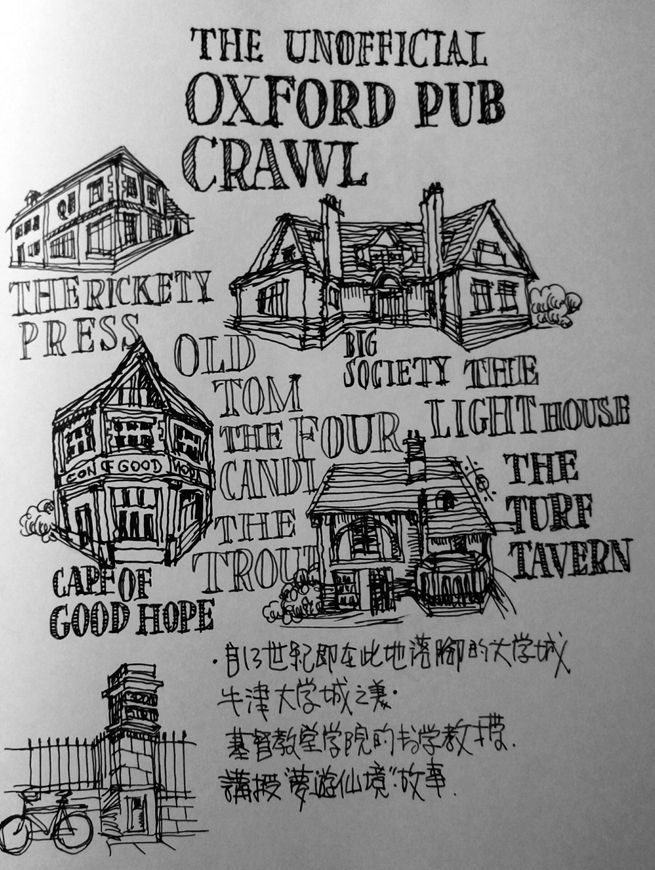 THE UNOFFICIAL
OXFORD PUB
CRAWL
THE RICKETY
PRESS
BIG
SOCIETY
THE
LIGHTHOUSE
OLD
TOM
THE FOUR
CANDL
THE
TROUT
THE
TURF
TAVERN
OF GOOD
CAPE OF
GOOD HOPE
·自13世紀即在此地落腳的大学城
牛津大学城之
基督教堂学院的学教授.
講授“夢遊仙境”故事.